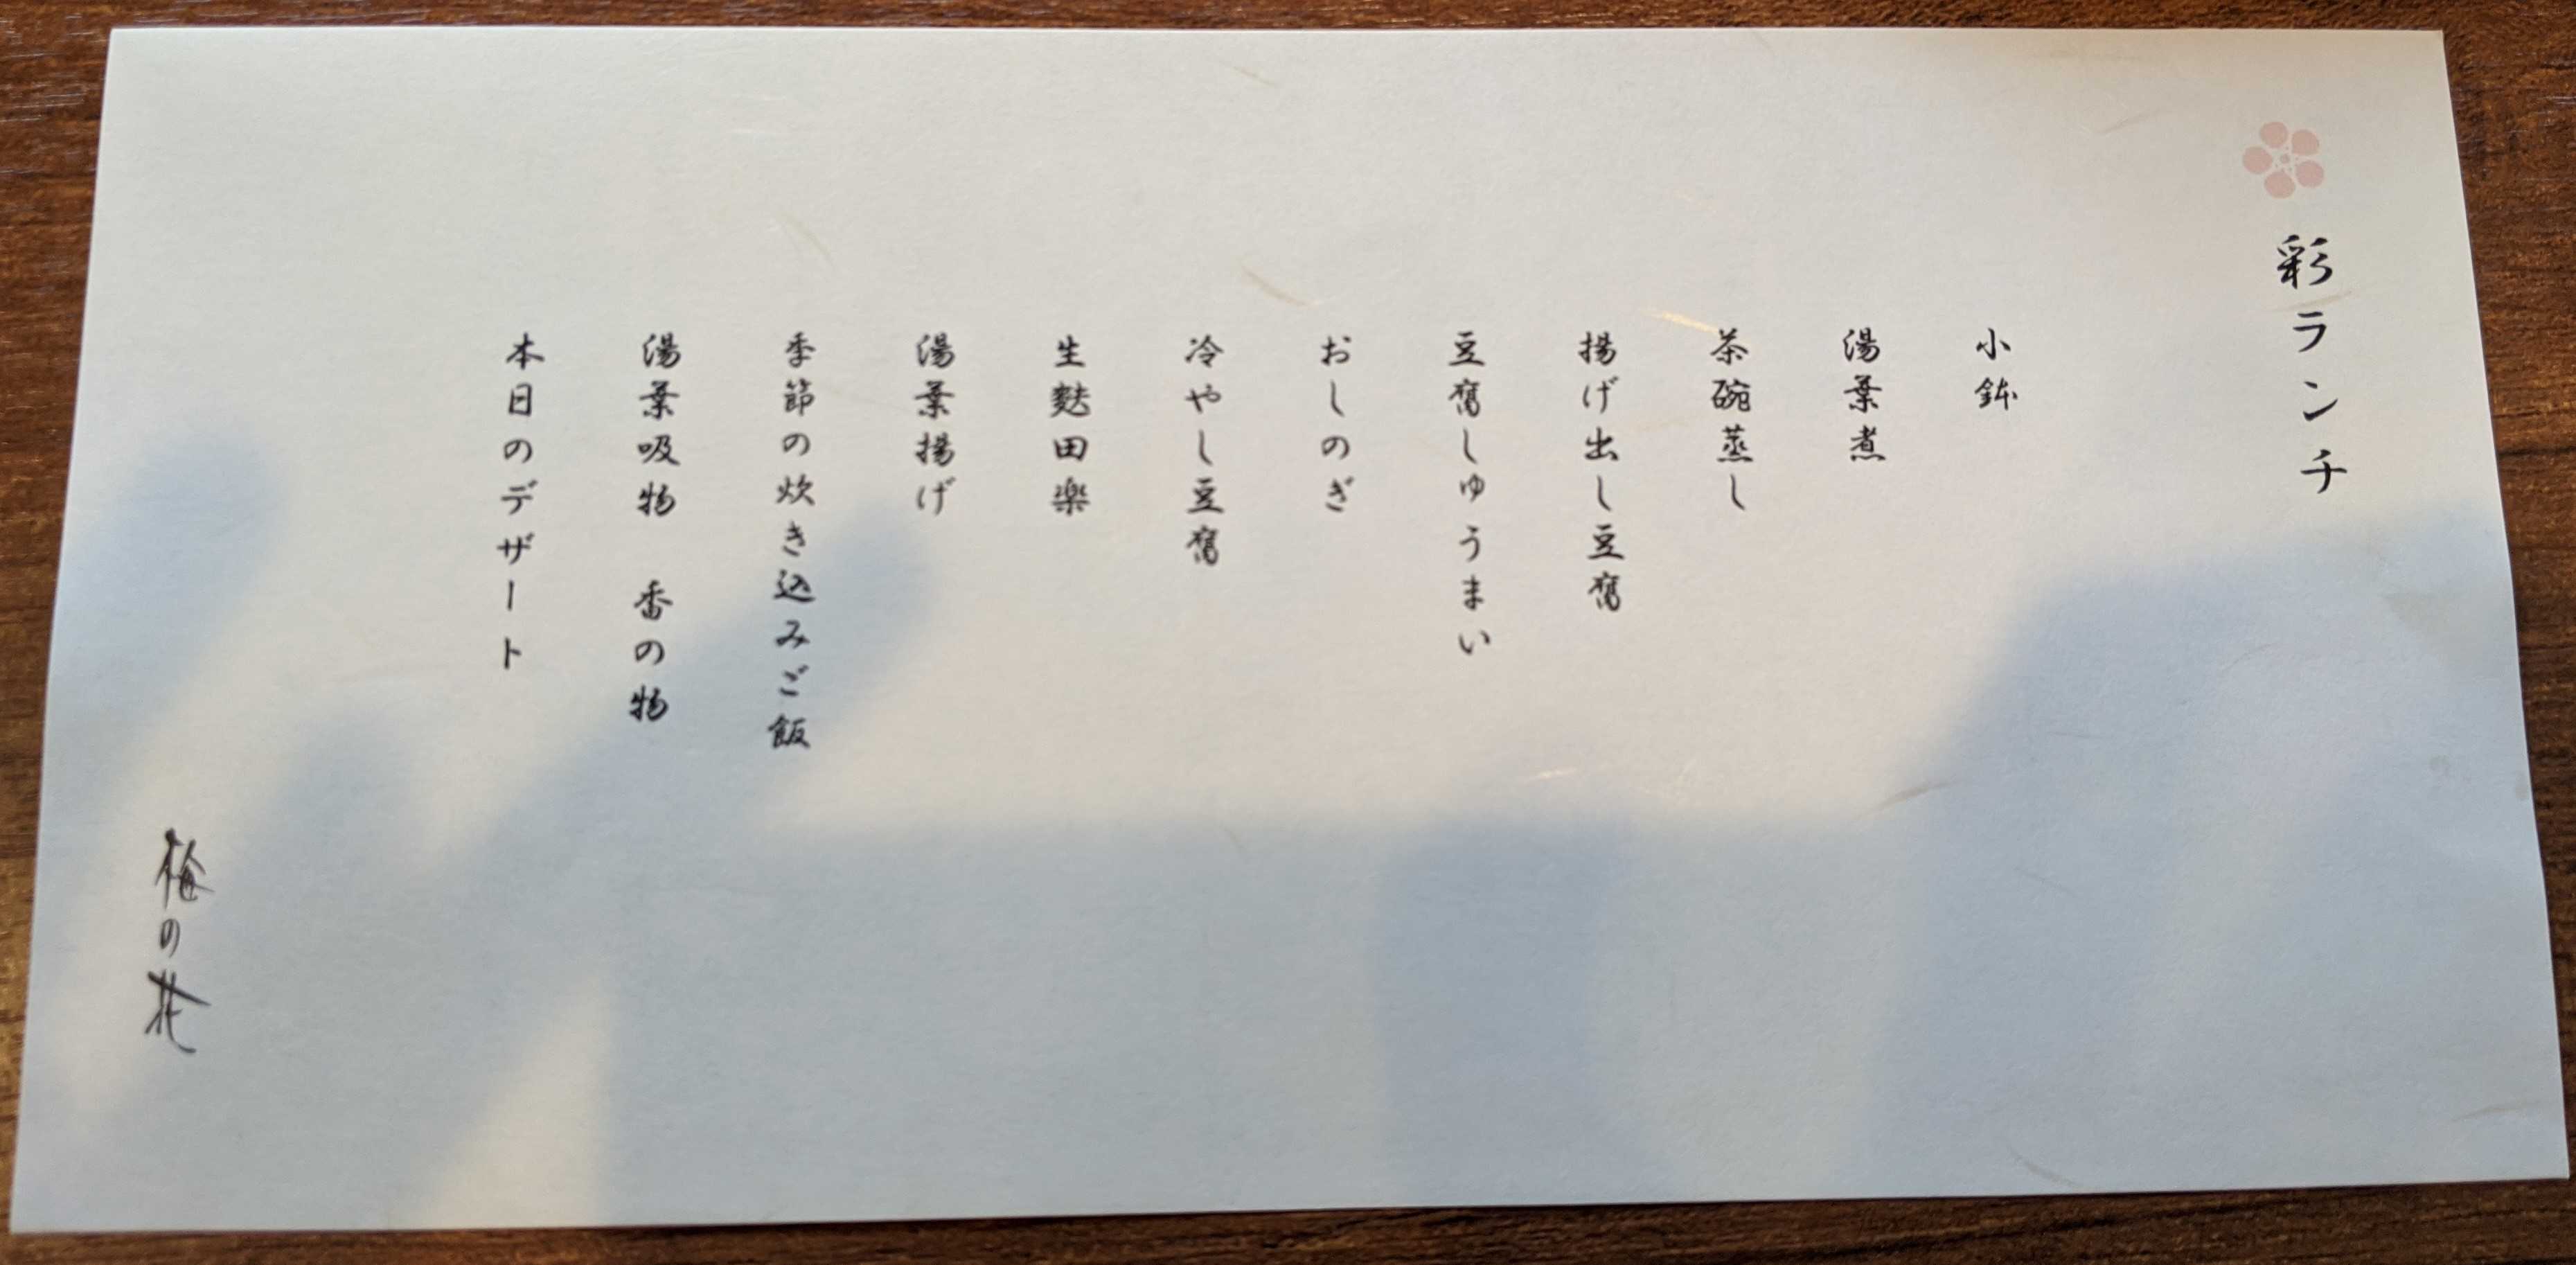 彩ランチ
小鉢
湯葉煮
茶碗蒸し
揚げ出し豆腐
豆腐しゅうまい
おしのぎ
冷やし豆腐
生麩田楽
湯葉揚げ
季節の炊き込みご飯
湯葉吸物　香の物
本日のデザート
梅の花